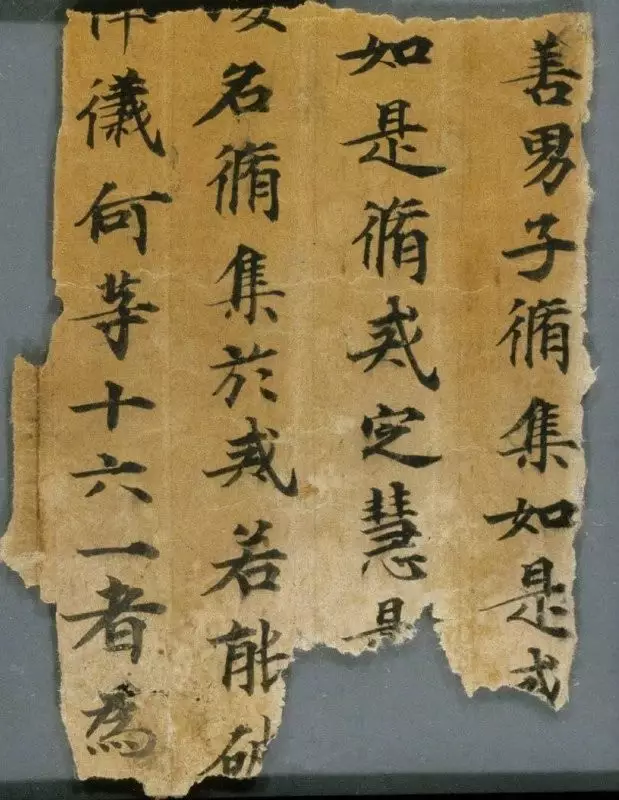 善男子脩集如是戒
如是脩戒定慧是
名脩集於戒若能破
儀何等十六一者為